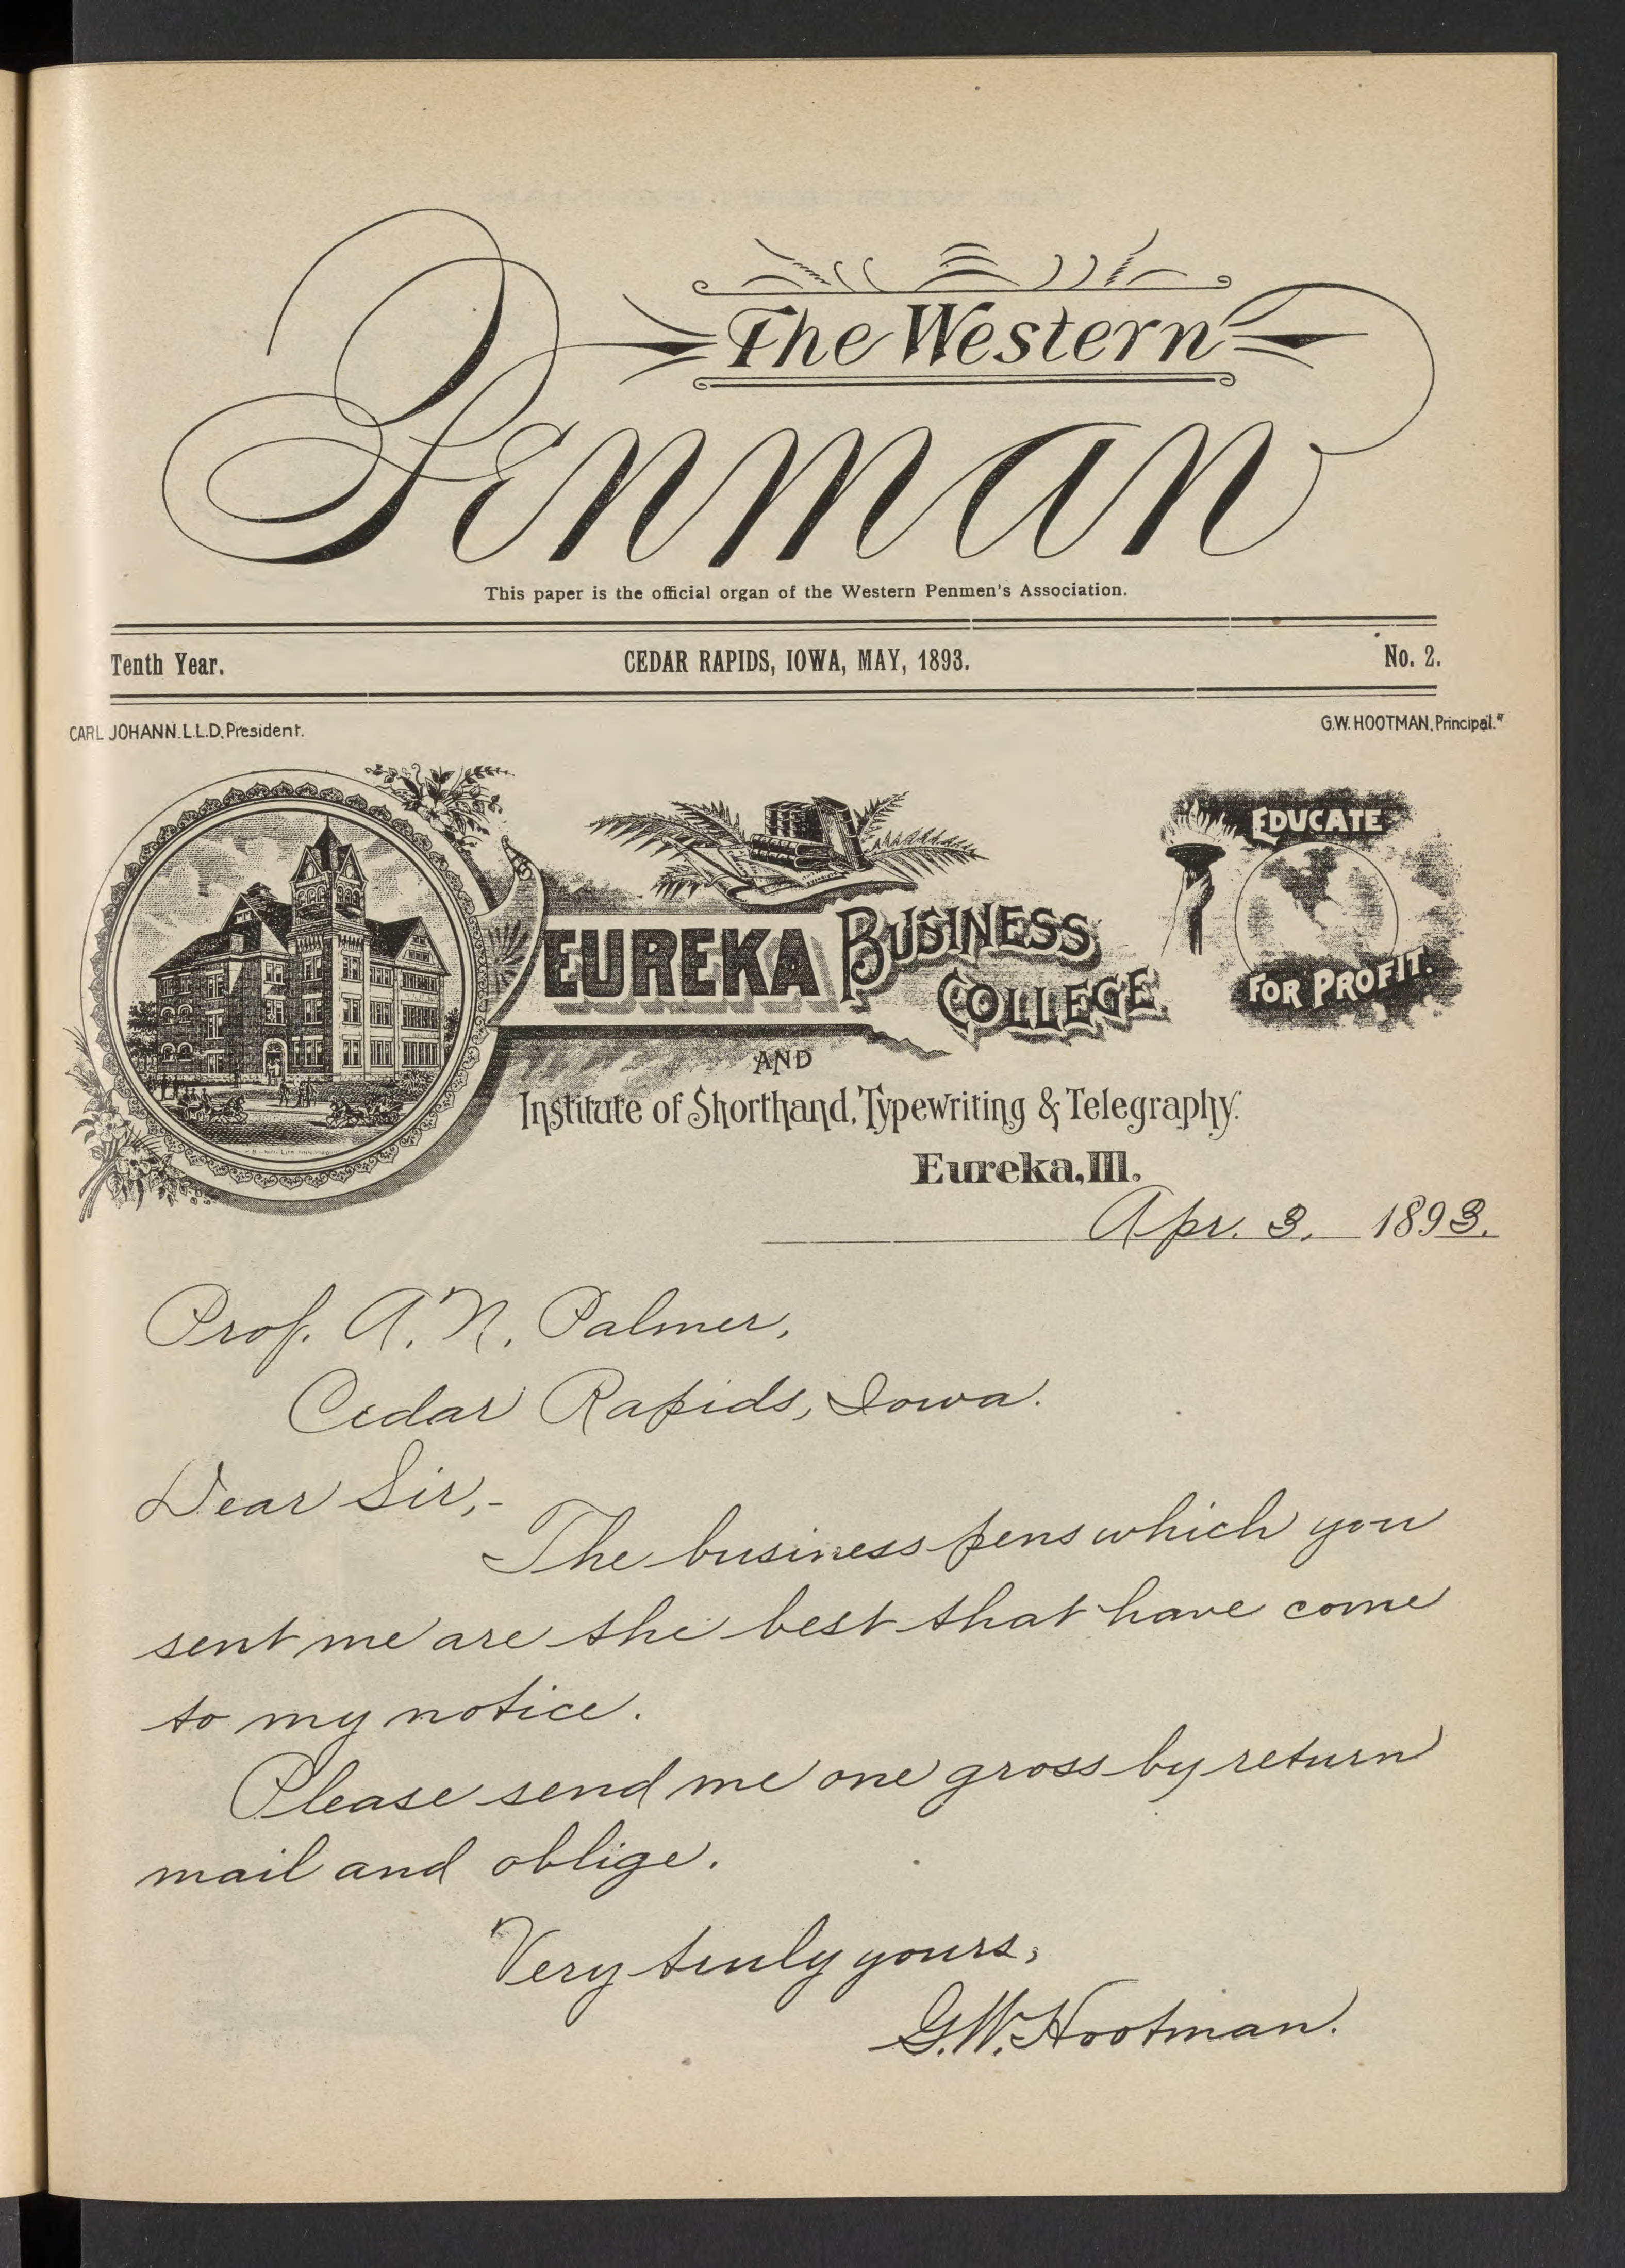 The Western
Penman
This paper is the official organ of the Western Penmen's Association.
Tenth Year. CEDAR RAPIDS, IOWA, MAY, 1893. No. 2.
CARL JOHANN. L.L.D. President. G.W. HOOTMAN, Principal.
EDUCATE
FOR PROFIT.
EUREKA BUSINESS
COLLEGE
AND
Institute of Shorthand, Typewriting & Telegraphy.
Eureka, Ill.
Apr. 3, 1893.
Prof. A. N. Palmer,
Cedar Rapids, Iowa.
Dear Sir,-
The business pens which you
sent me are the best that have come
to my notice.
Please send me one gross by return
mail and oblige.
Very truly yours,
G.W. Hootman.